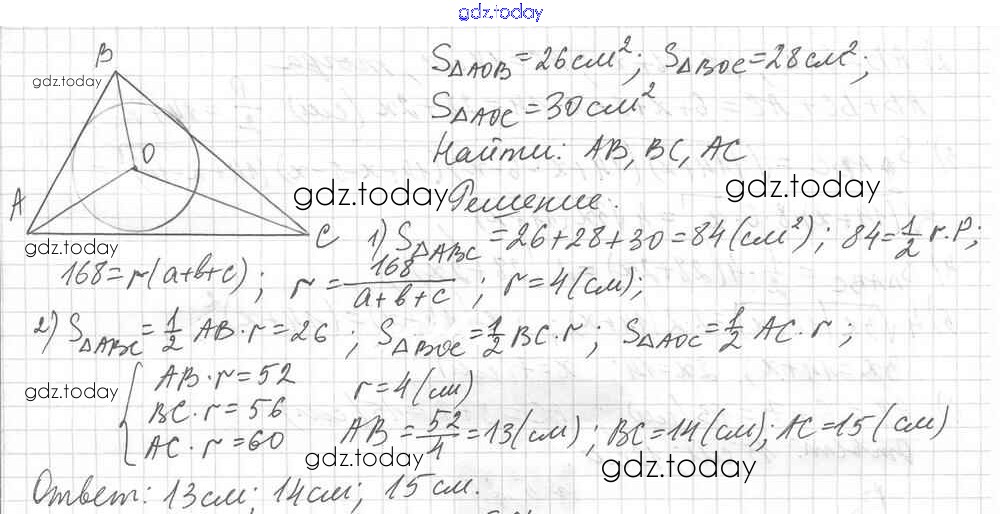 gdz.today
B
gdz.today
O
A
C
gdz.today
S△AOB = 26 см²; S△BOC = 28 см²;
S△AOC = 30 см²
Найти: AB, BC, AC
gdz.today
gdz.today
Решение:
1) S△ABC = 26+28+30 = 84 (см²); 84 = 1/2 r·P;
168 = r(a+b+c); r = 168/(a+b+c); r = 4 (см);
2) S△ABC = 1/2 AB·r = 26; S△BOC = 1/2 BC·r; S△AOC = 1/2 AC·r;
gdz.today
{ AB·r = 52 r = 4 (см)
BC·r = 56
AC·r = 60 AB = 52/4 = 13 (см); BC = 14 (см); AC = 15 (см)
gdz.today
gdz.today
Ответ: 13 см; 14 см; 15 см.